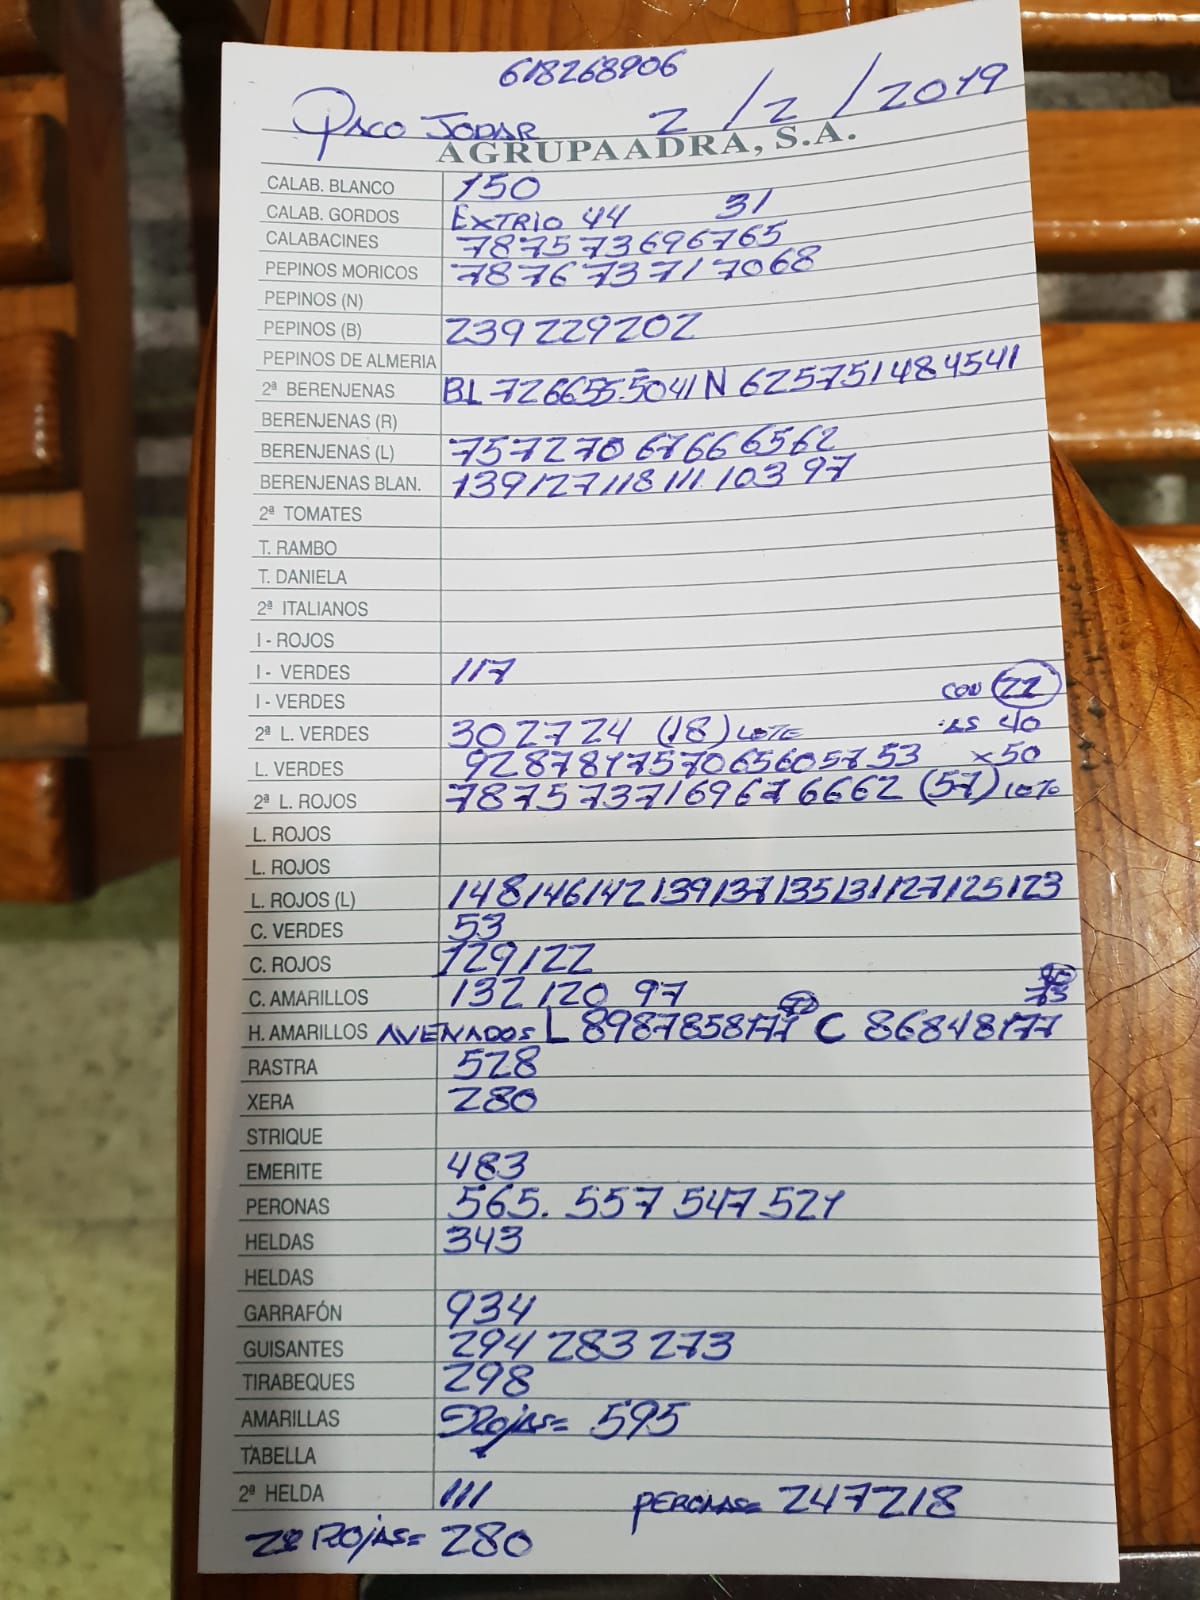 618268906
PACO JODAR 2/2/2019
AGRUPAADRA, S.A.
CALAB. BLANCO 150
CALAB. GORDOS EXTRIO 44 31
CALABACINES 787573696765
PEPINOS MORICOS 787673717068
PEPINOS (N)
PEPINOS (B) 239229202
PEPINOS DE ALMERIA
2ª BERENJENAS BL 7266555041 N 625751484541
BERENJENAS (R)
BERENJENAS (L) 75727067666562
BERENJENAS BLAN. 139127118111.103 97
2ª TOMATES
T. RAMBO
T. DANIELA
2ª ITALIANOS
I - ROJOS
I - VERDES 117
I - VERDES CON 22
2ª L. VERDES 302724 (18) LOTE 40
L. VERDES 928781757065605753 x50
2ª L. ROJOS 787573716967666 2 (57) LOTE
L. ROJOS
L. ROJOS
L. ROJOS (L) 148146142139137135131127125123
C. VERDES 53
C. ROJOS 129122
C. AMARILLOS 132 120 97 73
H. AMARILLOS AVENADOS L 8987858177 C 86848177
RASTRA 528
XERA 280
STRIQUE
EMERITE 483
PERONAS 565. 557 547 521
HELDAS 343
HELDAS
GARRAFÓN 934
GUISANTES 294 283 273
TIRABEQUES 298
AMARILLAS ROJAS= 595
TABELLA
2ª HELDA 111 PERONAS= 247218
2ª ROJAS= 280